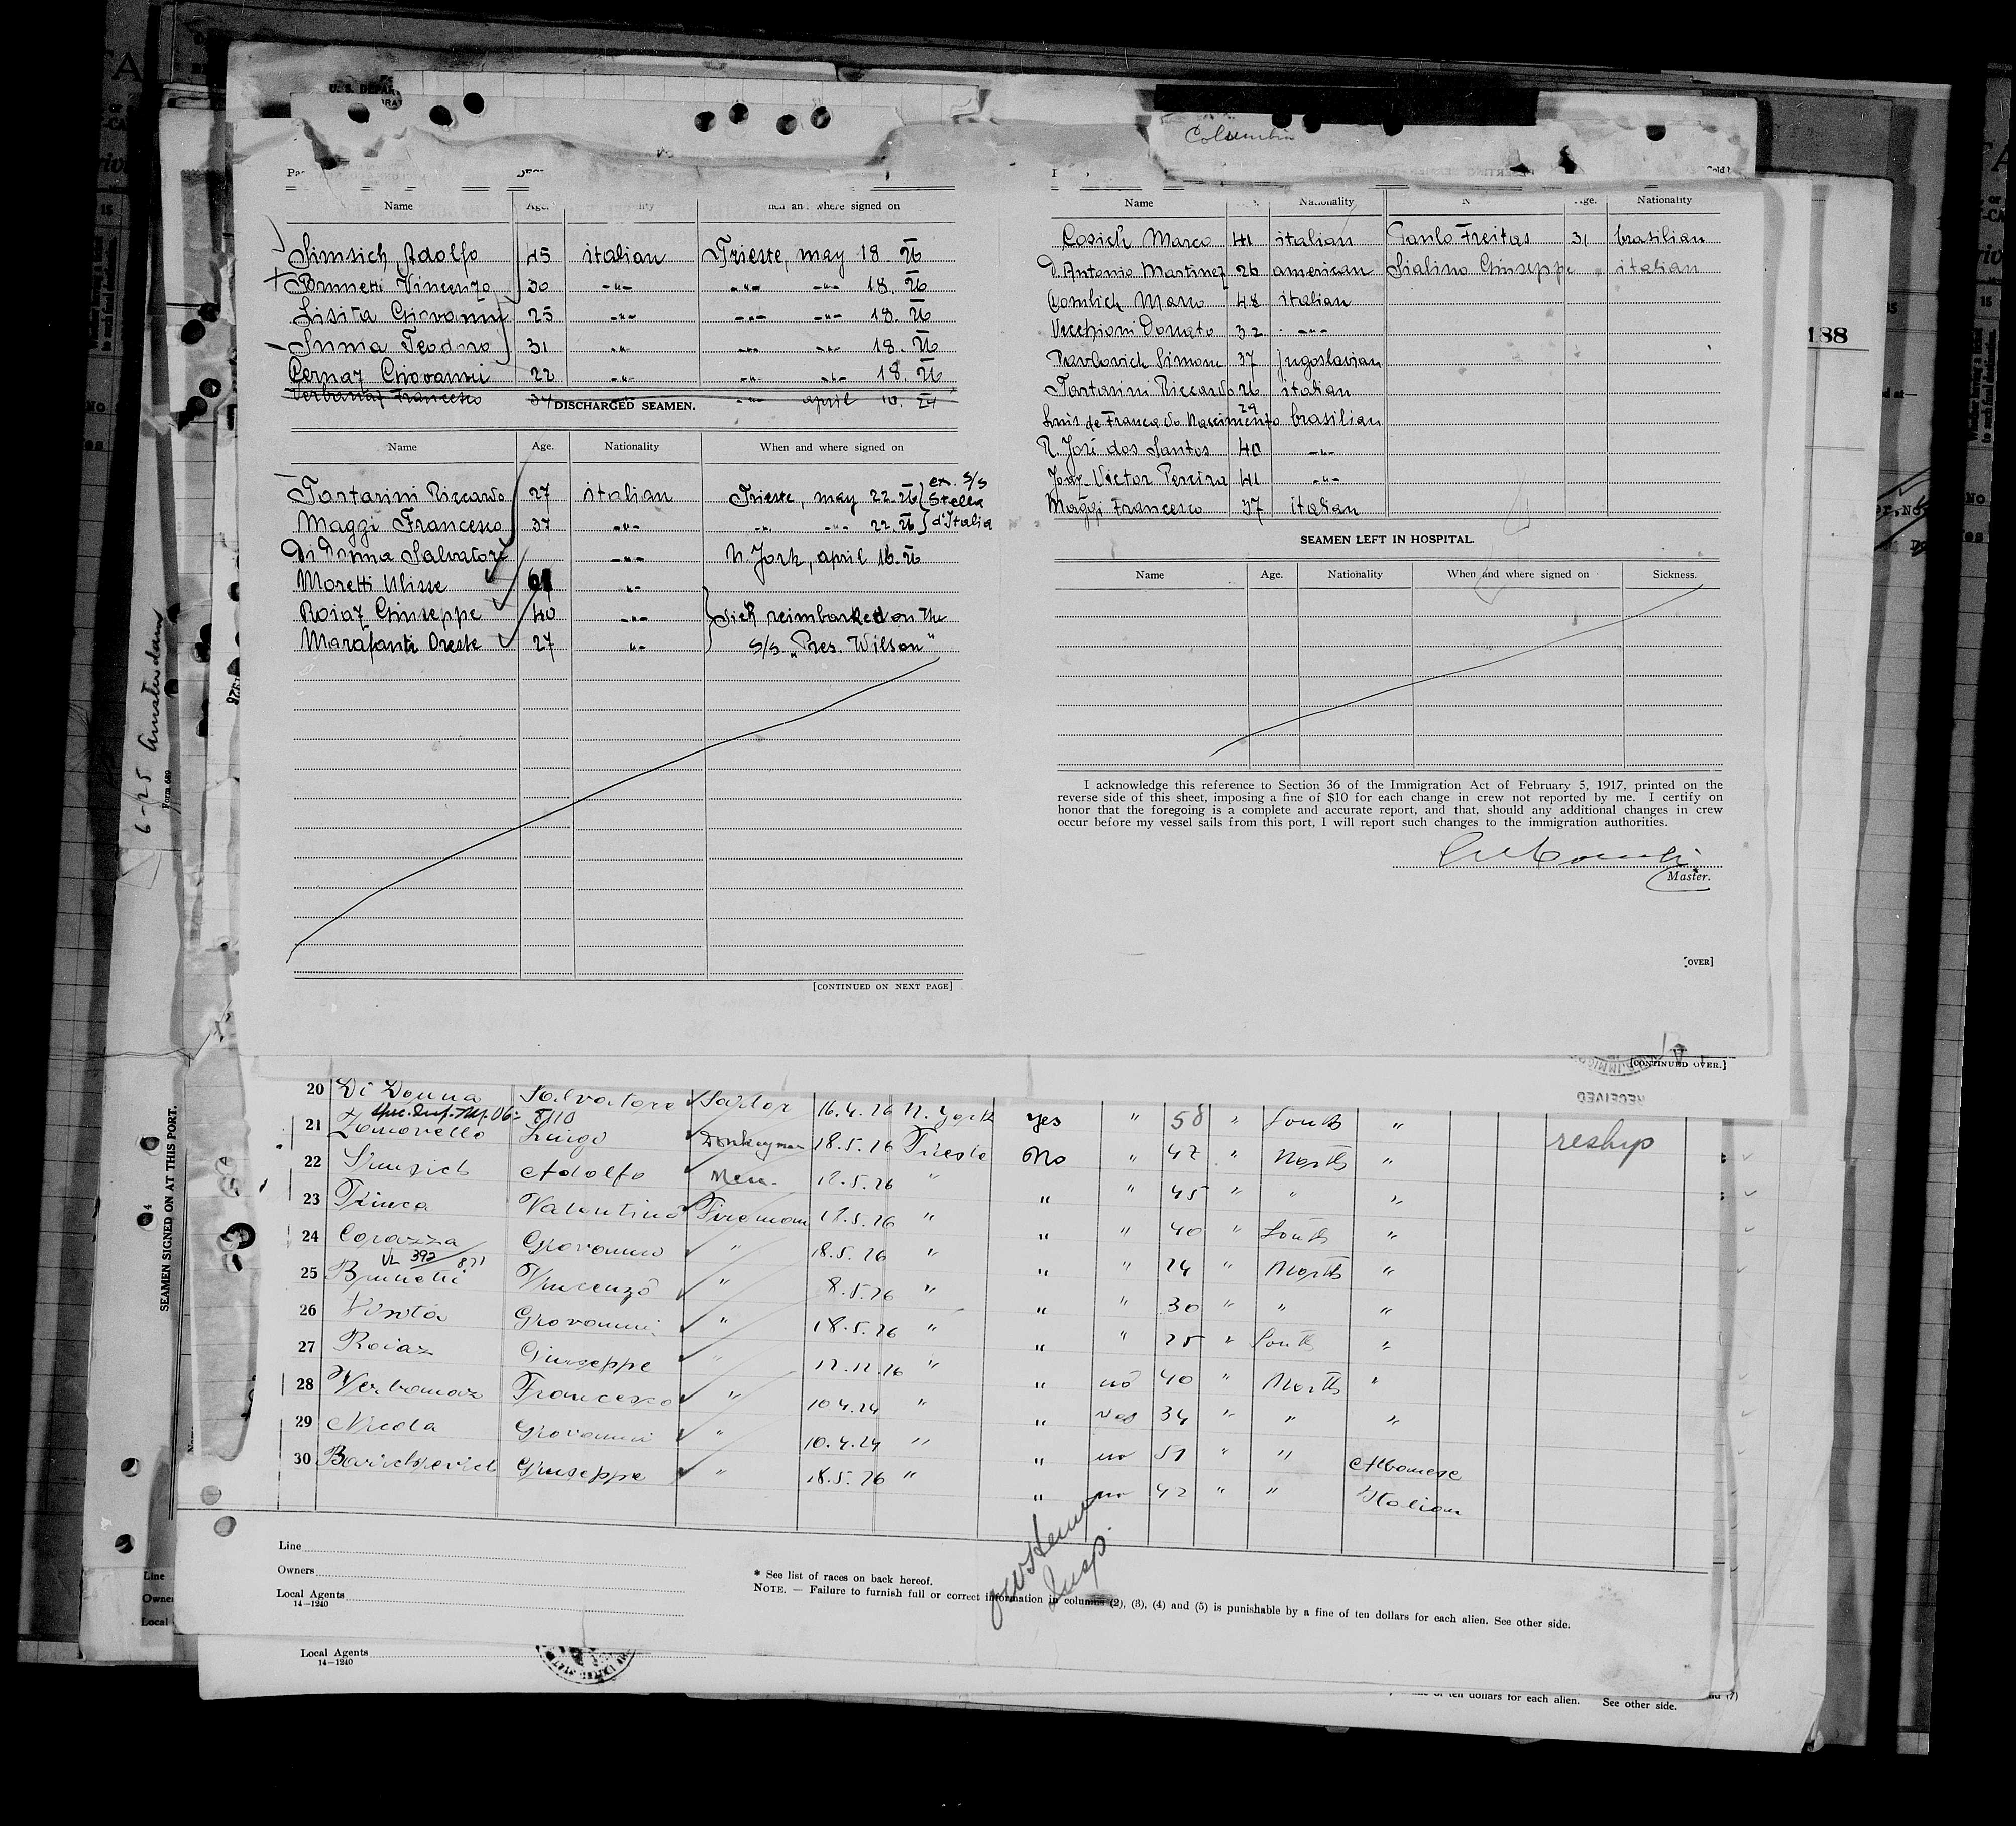 Columbia
U. S. DEPAR
Name Age. when and where signed on
Simsich Adolfo 45 italian Trieste, may 18. 26
Brunetti Vincenzo 30 -"- -"- -"- 18. 26
Lisita Giovanni 25 -"- -"- -"- 18. 26
Summa Teodoro 31 -"- -"- -"- 18. 26
Cernaz Giovanni 22 -"- -"- -"- 18. 26
Verbanaz Francesco 34 -"- april 10. 24
DISCHARGED SEAMEN.
Name Age. Nationality When and where signed on
Tartarini Riccardo 27 italian Trieste, may 22. 26 ex. S/S Stella
Maggi Francesco 37 -"- -"- -"- 22. 26 d'Italia
Di Donna Salvatore -"- N. York, april 16. 26
Moretti Ulisse "-
Roiaz Giuseppe 40 -"- sick reimbarked on the
Marafanti Oreste 27 "- S/S „Pres. Wilson"
[CONTINUED ON NEXT PAGE]
Name Nationality Age. Nationality
Cosich Marco 41 italian Paulo Freitas 31 brasilian
D. Antonio Martinez 26 american Sialino Giuseppe " italian
Comlich Marco 48 italian
Vecchioni Donato 32 -"-
Pavlovich Simone 37 jugoslavian
Tartarini Riccardo 26 italian
Luis de Franca do Nascimento 29 brasilian
R. José dos Santos 40 -"-
Jony Victor Pereira 41 -"-
Maggi Francesco 37 italian
SEAMEN LEFT IN HOSPITAL.
Name Age. Nationality When and where signed on Sickness.
I acknowledge this reference to Section 36 of the Immigration Act of February 5, 1917, printed on the
reverse side of this sheet, imposing a fine of $10 for each change in crew not reported by me. I certify on
honor that the foregoing is a complete and accurate report, and that, should any additional changes in crew
occur before my vessel sails from this port, I will report such changes to the immigration authorities.
Master.
[OVER]
[CONTINUED OVER.]
RECEIVED
188
6-25 Amsterdam
Form 689
SEAMEN SIGNED ON AT THIS PORT.
20 Di Donna Salvatore Sailor 16.4.26 N. York yes " 58 " South "
Spec. Insp.
21 Zanovello Luigi Donkeyman 18.5.26 Trieste No " 42 " North " reship
22 Simsich Adolfo Men. 18.5.26 " " " 45 " " "
23 Trinca Valentino Fireman 18.5.26 " " " 40 " South "
24 Corazza Giovanni " 18.5.26 " " " 24 " North "
VL 392/871
25 Brunetti Vincenzo " 8.5.26 " " " 30 " " "
26 Visita Giovanni " 18.5.26 " " " 25 " South "
27 Roiaz Giuseppe " 12.12.26 " " no 40 " North "
28 Verbanaz Francesco " 10.4.24 " " yes 34 " " "
29 Nicola Giovanni " 10.4.24 " " no 51 " " Albanese
30 Barichievich Giuseppe " 18.5.26 " " no 42 " " Italian
Insp.
Line
Owners
Local Agents
14—1240
* See list of races on back hereof.
NOTE. — Failure to furnish full or correct information in columns (2), (3), (4) and (5) is punishable by a fine of ten dollars for each alien. See other side.
Local Agents
14—1240
of ten dollars for each alien. See other side.
Line
Owner
Local